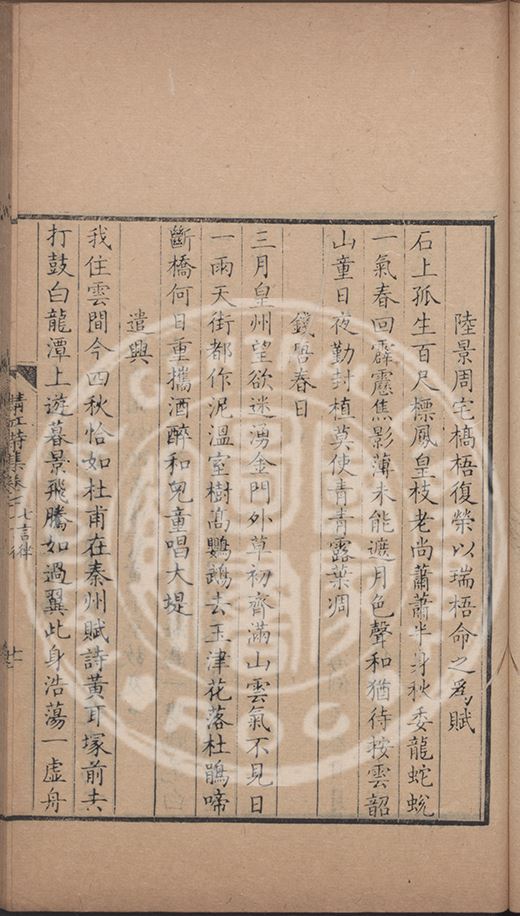 陸景周宅槁梧復榮以瑞梧命之爲賦
石上孤生百尺標鳳皇枝老尚蕭蕭半身秋委龍蛇蛻
一氣春回霹靂焦影薄未能遮月色聲和猶待按雲韶
山童日夜勤封植莫使青青露葉凋
錢唐春日
三月皇州望欲迷湧金門外草初齊滿山雲氣不見日
一雨天街都作泥溫室樹高鸚鵡去玉津花落杜鵑啼
斷橋何日重攜酒醉和兒童唱大堤
遣興
我住雲間今四秋恰如杜甫在秦州賦詩黃耳塚前去
打鼓白龍潭上遊暮景飛騰如過翼此身浩蕩一虛舟
清江詩集卷七 七言律 十